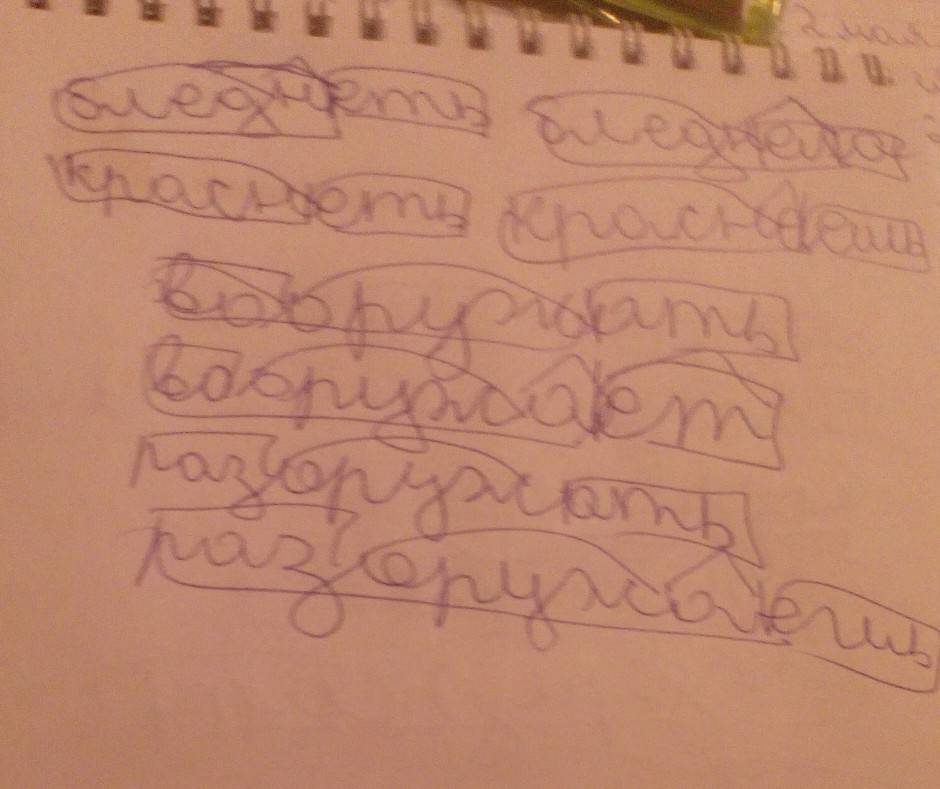 2 мая
бледнеть
краснеть краснеешь
вооружать
вооружает
разоружать
разоружаешь